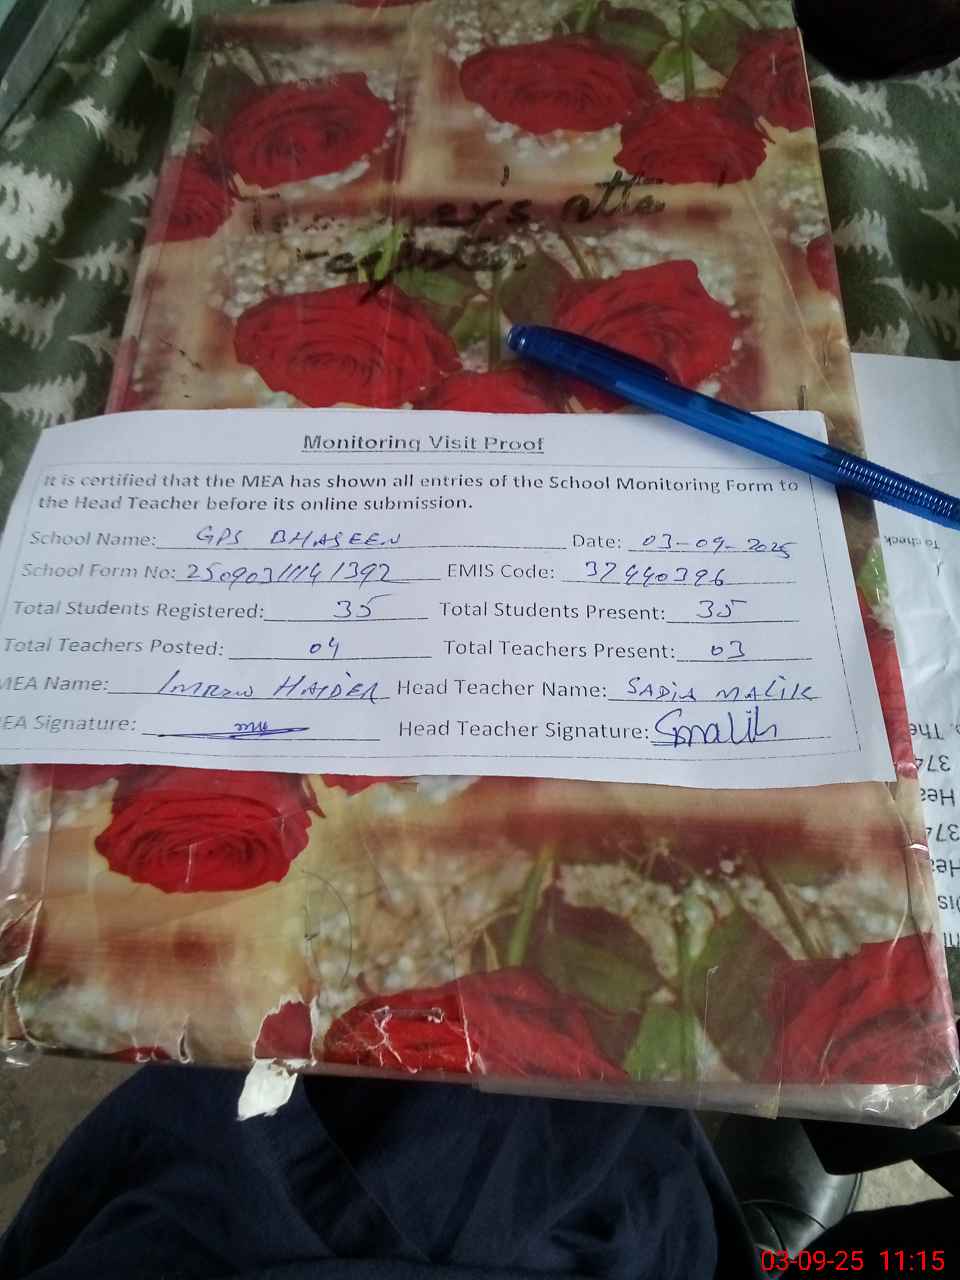 exs atte
register
Monitoring Visit Proof
It is certified that the MEA has shown all entries of the School Monitoring Form to
the Head Teacher before its online submission.
School Name: GPS BHASEEN Date: 03-09-2025
School Form No: 250903111141392 EMIS Code: 37440396
Total Students Registered: 35 Total Students Present: 35
Total Teachers Posted: 04 Total Teachers Present: 03
MEA Name: IMRAN HAIDER Head Teacher Name: SADIA MALIK
EA Signature: Head Teacher Signature: Smalik
To check
The
374
Hea
374
Hea
Dis
03-09-25 11:15